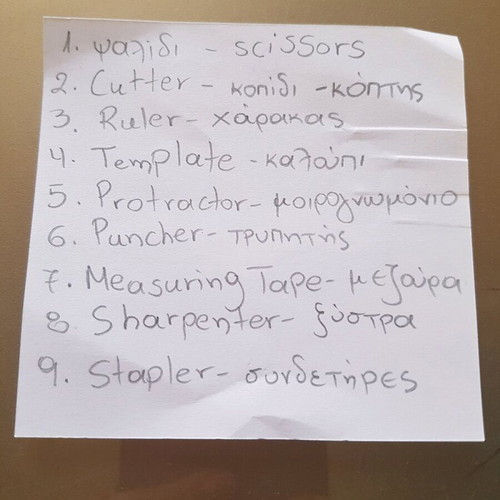 1. ψαλίδι - scissors
2. Cutter - κοπίδι - κόπτης
3. Ruler - χάρακας
4. Template - καλούπι
5. Protractor - μοιρογνωμόνιο
6. Puncher - τρυπητής
7. Measuring Tape - μεζούρα
8 Sharpenter - ξύστρα
9. Stapler - συνδετήρες